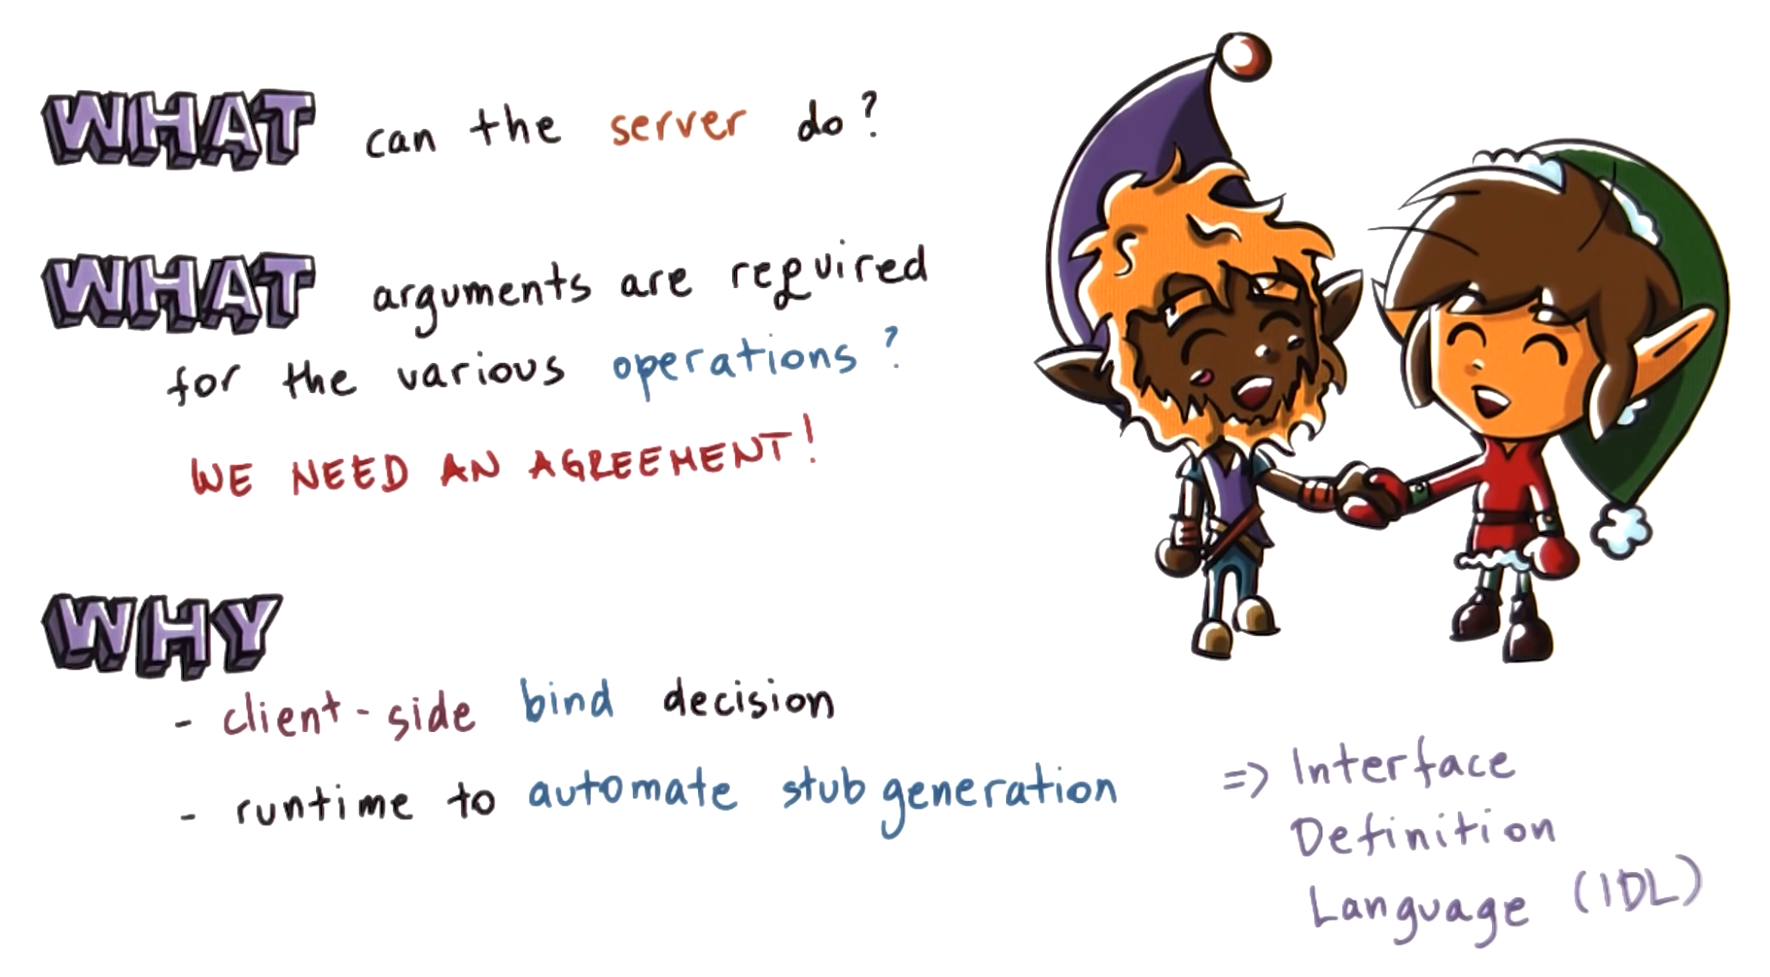 WHAT can the server do?
WHAT arguments are required
for the various operations?
WE NEED AN AGREEMENT!
WHY
- client-side bind decision
- runtime to automate stub generation
=> Interface
Definition
Language (IDL)